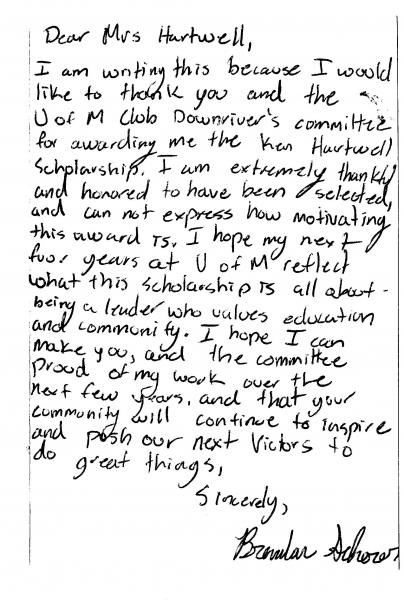 Dear Mrs Hartwell,
I am writing this because I would
like to thank you and the
U of M Club Downriver's committee
for awarding me the Ken Hartwell
Scholarship. I am extremely thankful
and honored to have been selected,
and can not express how motivating
this award is. I hope my next
four years at U of M reflect
what this scholarship is all about -
being a leader who values education
and community. I hope I can
make you, and the committee
proud of my work over the
next few years, and that your
community will continue to inspire
and push our next Victors to
do great things,
Sincerely,